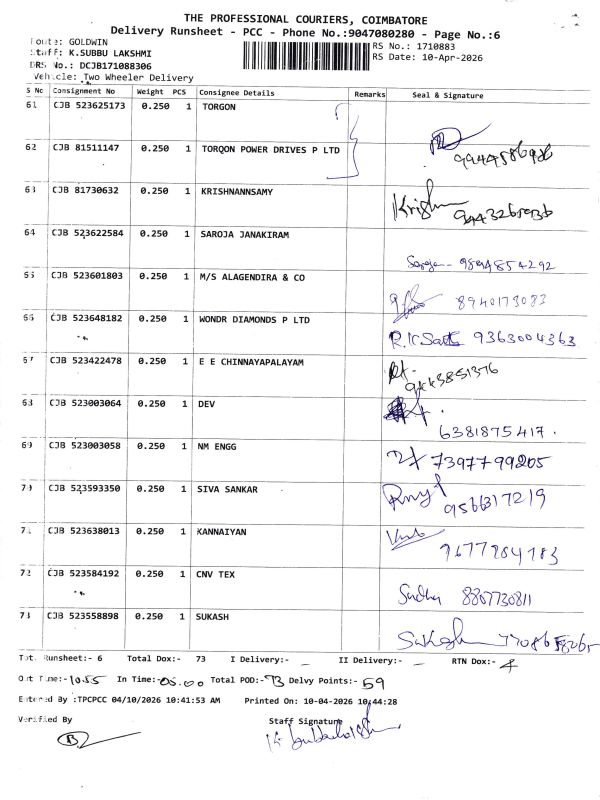 THE PROFESSIONAL COURIERS, COIMBATORE
Delivery Runsheet - PCC - Phone No.:9047080280 - Page No.:6
Route: GOLDWIN
Staff: K.SUBBU LAKSHMI
RS No.: 1710883
DRS No.: DCJB171088306
RS Date: 10-Apr-2026
Vehicle: Two Wheeler Delivery
S No Consignment No Weight PCS Consignee Details Remarks Seal & Signature
61 CJB 523625173 0.250 1 TORGON
62 CJB 81511147 0.250 1 TORQON POWER DRIVES P LTD
63 CJB 81730632 0.250 1 KRISHNANNSAMY
64 CJB 523622584 0.250 1 SAROJA JANAKIRAM Saroja 9894854292
65 CJB 523601803 0.250 1 M/S ALAGENDIRA & CO 8940173083
66 CJB 523648182 0.250 1 WONDR DIAMONDS P LTD 9363004363
67 CJB 523422478 0.250 1 E E CHINNAYAPALAYAM 9443851376
68 CJB 523003064 0.250 1 DEV 6381875417.
69 CJB 523003058 0.250 1 NM ENGG 7397799205
70 CJB 523593350 0.250 1 SIVA SANKAR 9566317219
71 CJB 523638013 0.250 1 KANNAIYAN
72 CJB 523584192 0.250 1 CNV TEX Sudha 8807730811
73 CJB 523558898 0.250 1 SUKASH
Tot. Runsheet:- 6 Total Dox:- 73 I Delivery:- _ II Delivery:- _ RTN Dox:- 4
Out Time:- 10.55 In Time:- 05.00 Total POD:- 73 Delvy Points:- 59
Entered By :TPCPCC 04/10/2026 10:41:53 AM Printed On: 10-04-2026 10:44:28
Verified By Staff Signature